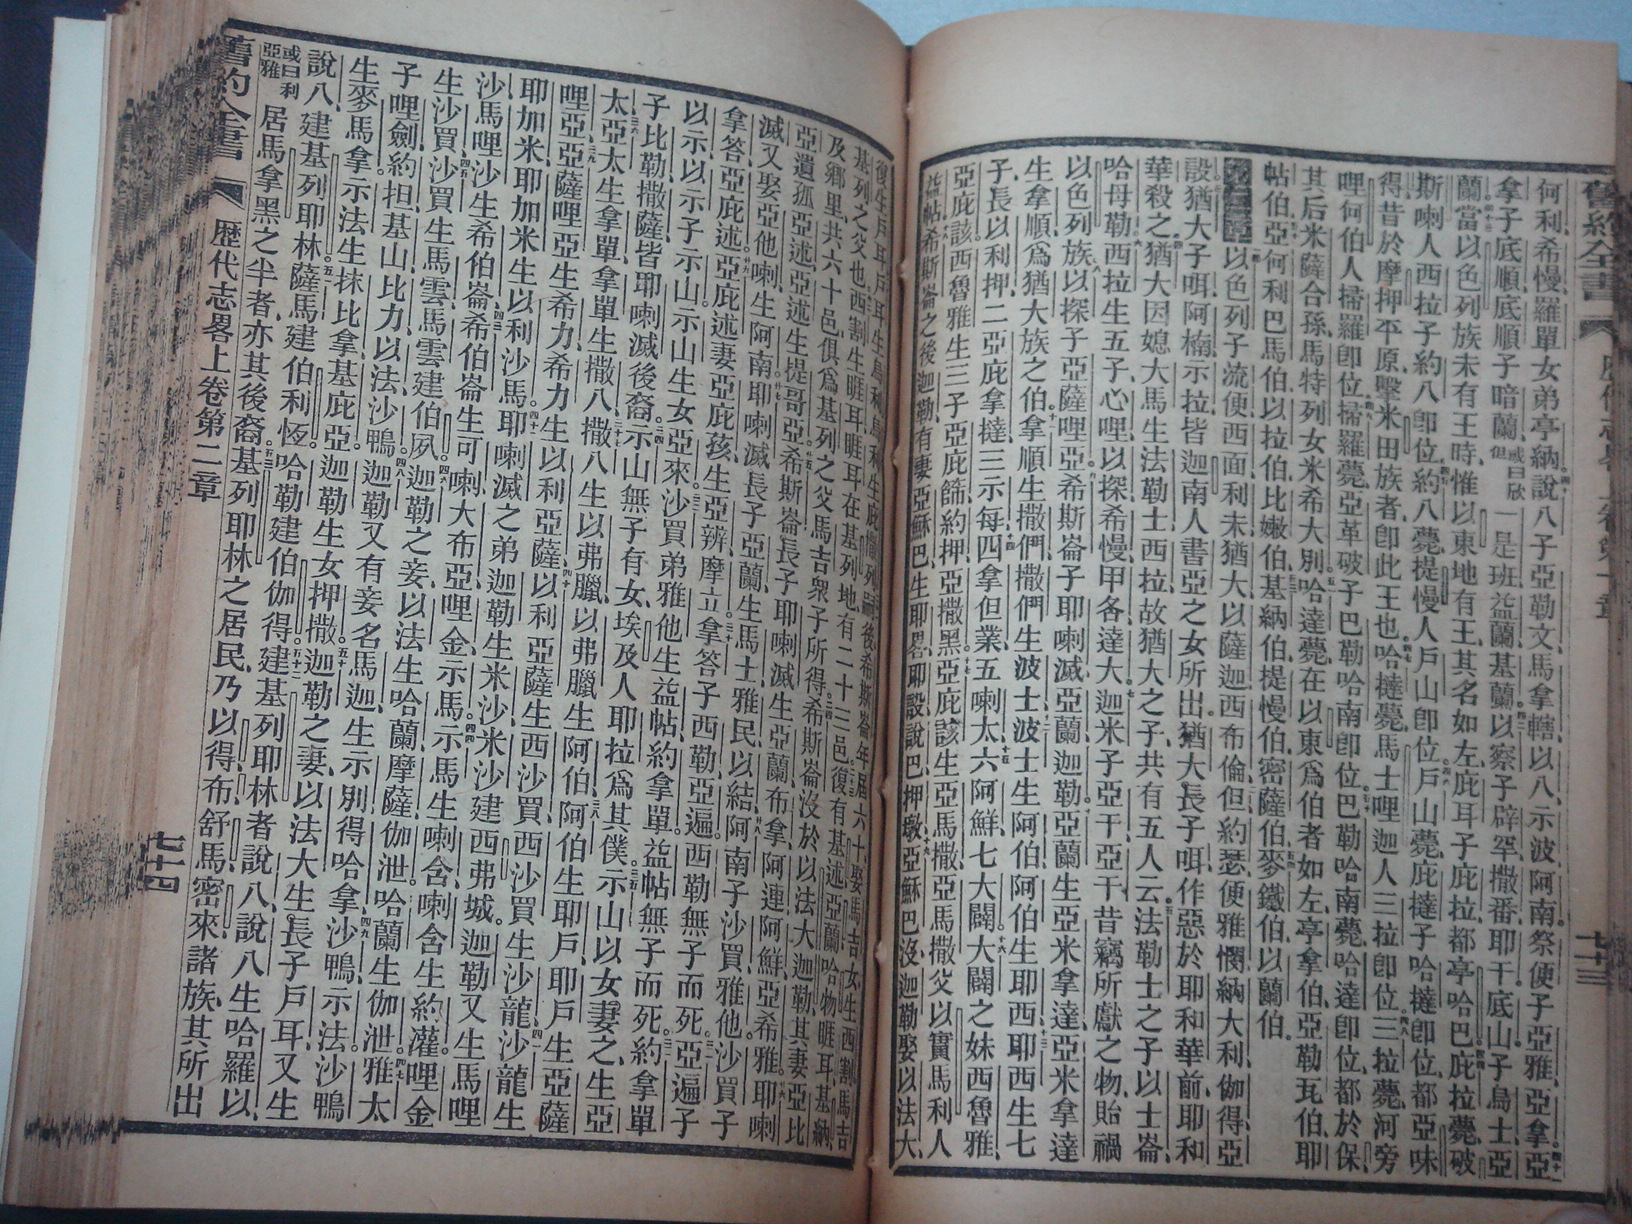 舊約全書
何利希慢羅單女弟亭納說八子亞勒文馬拿轄以八示波阿南祭便子亞雅亞拿
拿子底順底順子暗蘭或曰欣但一是班益蘭基蘭以察子辟罕撒番耶干底山子烏士亞
蘭當以色列族未有王時惟以東地有王其名如左庇耳子庇拉都亭哈巴庇拉薨破
斯喇人西拉子約八卽位約八薨提慢人戶山卽位戶山薨庇撻子哈撻卽位都亞味
得昔於摩押平原擊米田族者卽此王也哈撻薨馬士哩迦人三拉卽位三拉薨河旁
哩何伯人掃羅卽位掃羅薨亞革破子巴勒哈南卽位巴勒哈南薨哈達卽位都於保
其后米薩合孫馬特列女米希大別哈達薨在以東爲伯者如左亭拿伯亞勒瓦伯耶
帖伯亞何利巴馬伯以拉伯比嫩伯基納伯提慢伯密薩伯麥鐵伯以蘭伯
以色列子流便西面利未猶大以薩迦西布倫但約瑟便雅憫納大利伽得亞
設猶大子咡阿楠示拉皆迦南人書亞之女所出猶大長子咡作惡於耶和華前耶和
華殺之猶大因媳大馬生法勒士西拉故猶大之子共有五人云法勒士之子以士崙
哈母勒西拉生五子心哩以探希慢甲各達大迦米子亞干亞干昔竊所獻之物貽禍
以色列族以探子亞薩哩亞希斯崙子耶喇滅亞蘭迦勒亞蘭生亞米拿達亞米拿達
生拿順爲猶大族之伯拿順生撒們撒們生波士波士生阿伯阿伯生耶西耶西生七
子長以利押二亞庇拿撻三示每四拿但業五喇太六阿鮮七大闢大闢之妹西魯雅
亞庇該西魯雅生三子亞庇篩約押亞撒黑亞庇該生亞馬撒亞馬撒父以實馬利人
益帖希斯崙之後迦勒有妻亞穌巴生耶畧耶設說巴押墩亞穌巴沒迦勒娶以法大
七十三
基列之父也西割生睚耳睚耳在基列地有二十三邑復有基述亞蘭哈物睚耳基納
及鄉里共六十邑俱爲基列之父馬吉衆子所得希斯崙沒於以法大迦勒其妻亞比
亞遺孤亞述亞述生提哥亞希斯崙長子耶喇滅生亞蘭布拿阿連阿鮮亞希雅耶喇
滅又娶亞他喇生阿南耶喇滅長子亞蘭生馬士雅民以結阿南子沙買雅他沙買子
拿答亞庇述亞庇述妻亞庇孩生亞辨摩立拿答子西勒亞遍西勒無子而死亞遍子
以示以示子示山示山生女亞來沙買弟雅他生益帖約拿單益帖無子而死約拿單
子比勒撒薩皆耶喇滅後裔示山無子有女埃及人耶拉爲其僕示山以女妻之生亞
太亞太生拿單拿單生撒八撒八生以弗臘以弗臘生阿伯阿伯生耶戶耶戶生亞薩
哩亞亞薩哩亞生希力希力生以利亞薩以利亞薩生西沙買西沙買生沙龍沙龍生
耶加米耶加米生以利沙馬耶喇滅之弟迦勒生米沙米沙建西弗城迦勒又生馬哩
沙馬哩沙生希伯崙希伯崙生可喇大布亞哩金示馬示馬生喇含喇含生約灌哩金
生沙買沙買生馬雲馬雲建伯夙迦勒之妾以法生哈蘭摩薩伽泄哈蘭生伽泄雅太
子哩劍約担基山比力以法沙鴨迦勒又有妾名馬迦生示別得哈拿沙鴨示法沙鴨
生麥馬拿示法生抹比拿基庇亞迦勒生女押撒迦勒之妻以法大生長子戶耳又生
說八建基列耶林薩馬建伯利恆哈勒建伯伽得建基列耶林者說八說八生哈羅以
或曰利亞雅居馬拿黑之半者亦其後裔基列耶林之居民乃以得布舒馬密來諸族其所出
舊約全書
歷代志畧上卷第二章
七十四